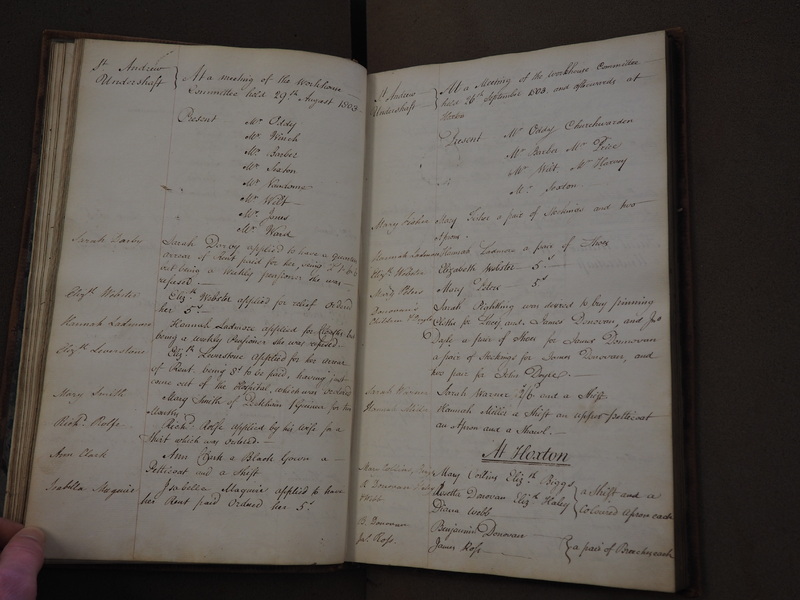 St Andrew
Undershaft
At a meeting of the Workhouse
Committee held 29th August 1803
Present Mr Oddy
Mr Winch
Mr Barber
Mr Sexton
Mr Vansome
Mr Wilt
Mr Jones
Mr Ward
Sarah Darby
Sarah Darby applied to have a Quarters
arrear of Rent paid for her, being
but being a weekly pensioner she was
refused.
Elizth Webster
Elizth Webster applied for relief Ordered
her 5s
Hannah Ladmore
Hannah Ladmore applied for
being a weekly Pensioner she was refused.
Elizth Leverstone
Elizth Leverstone applied for her arrear
of Rent being to be paid, having just
come out of the Hospital, which was Ordered
Mary Smith
Mary Smith of for her
Richd Rolfe
Richd Rolfe applied by his wife for a
Shirt which was ordered.
Ann Clark
Ann Clark a Black Gown a
Petticoat and a Shift
Isabella Maguire
Isabella Maguire applied to have
her Rent paid Ordered her 5s
St Andrew
Undershaft
At a Meeting of the Workhouse Committee
held 26th September 1803 and afterwards at
Hoxton
Present Mr Oddy Churchwarden
Mr Barber Mr Price
Mr Wilt Mr Harvey
Mr Sexton
Mary Fisher
Mary Fisher a pair of Stockings and two
Aprons
Hannah Ladmore
Hannah Ladmore a pair of Shoes
Elizth Webster
Elizabeth Webster 5s
Mary Peters
Mary Peters 5s
Donovan's
Children &
Sarah was desired to buy
Cloths for and James Donovan, and Jno
a pair of Shoes for James Donovan
a pair of Stockings for James Donovan, and
one pair for John Doyle.
Sarah Warner
Sarah Warner 2/6 and a Shift
Hannah Miles
Hannah Miles a Shift an upper petticoat
an Apron and a Shawl.
At Hoxton
Mary Collins,
Mary Collins Elizth Biggs
R Donovan
Donovan Elizth Haley
Webb
Diana Webb
a Shift and a
Coloured Apron each
B. Donovan
Benjamin Donovan
Jas. Ross.
James Ross
a pair of Breeches each